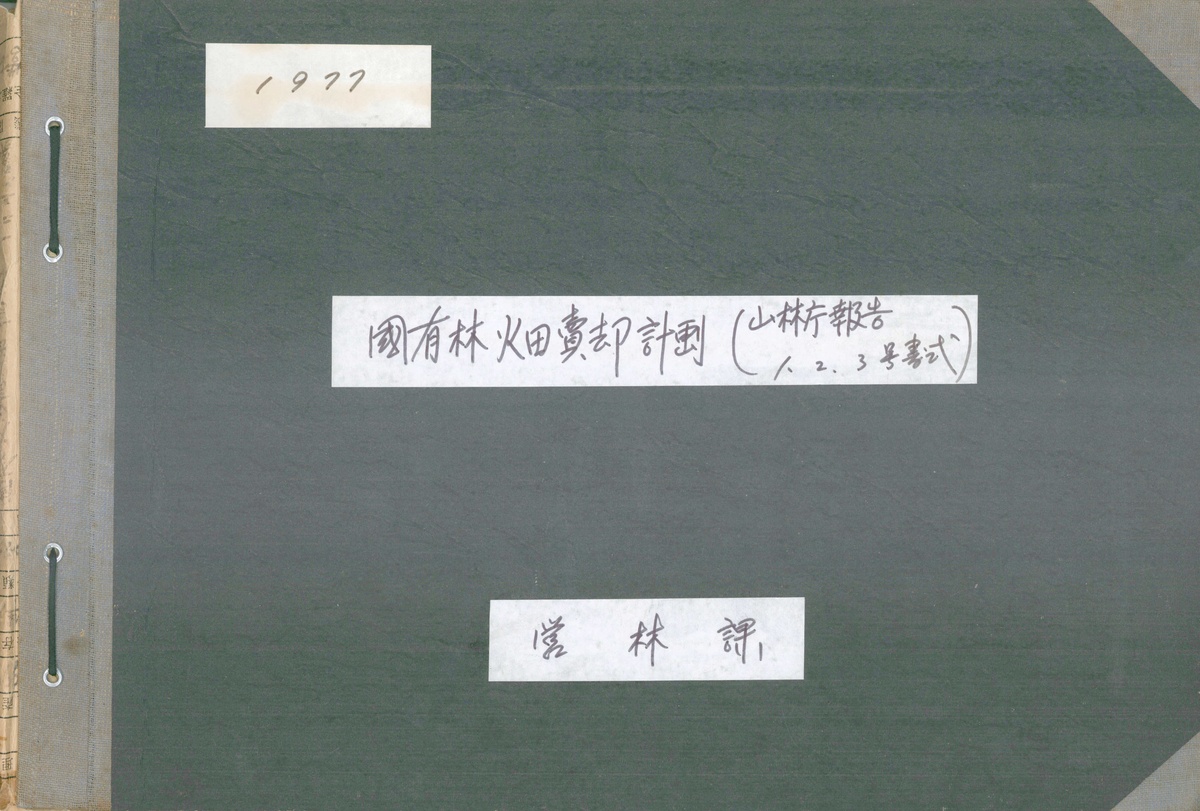 1977
國有林 畑田賣却計画 (山林庁報告
1. 2. 3 号書式)
営林課